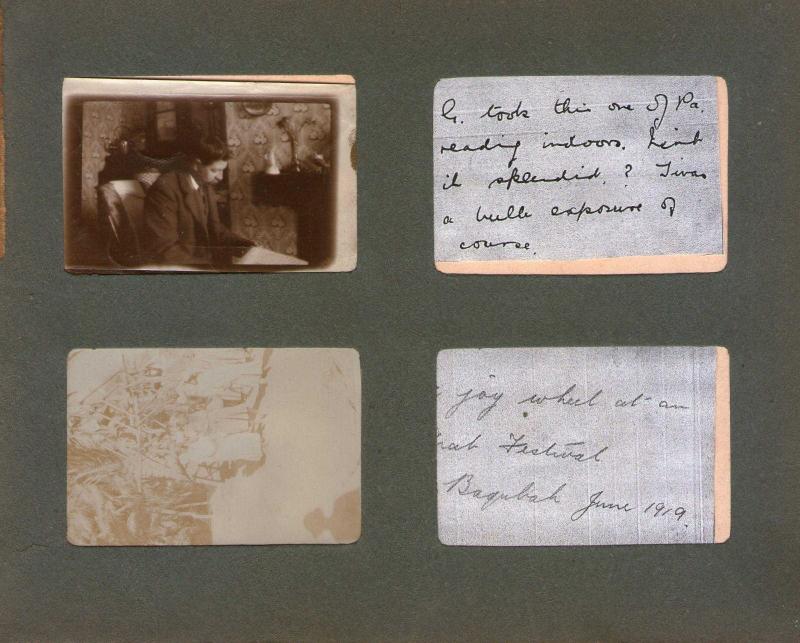 G. took this one of Pa.
reading indoors. Isn't
it splendid.? Twas
a bulb exposure of
course.
joy wheel at an
Festival
Baqubah June 1919.